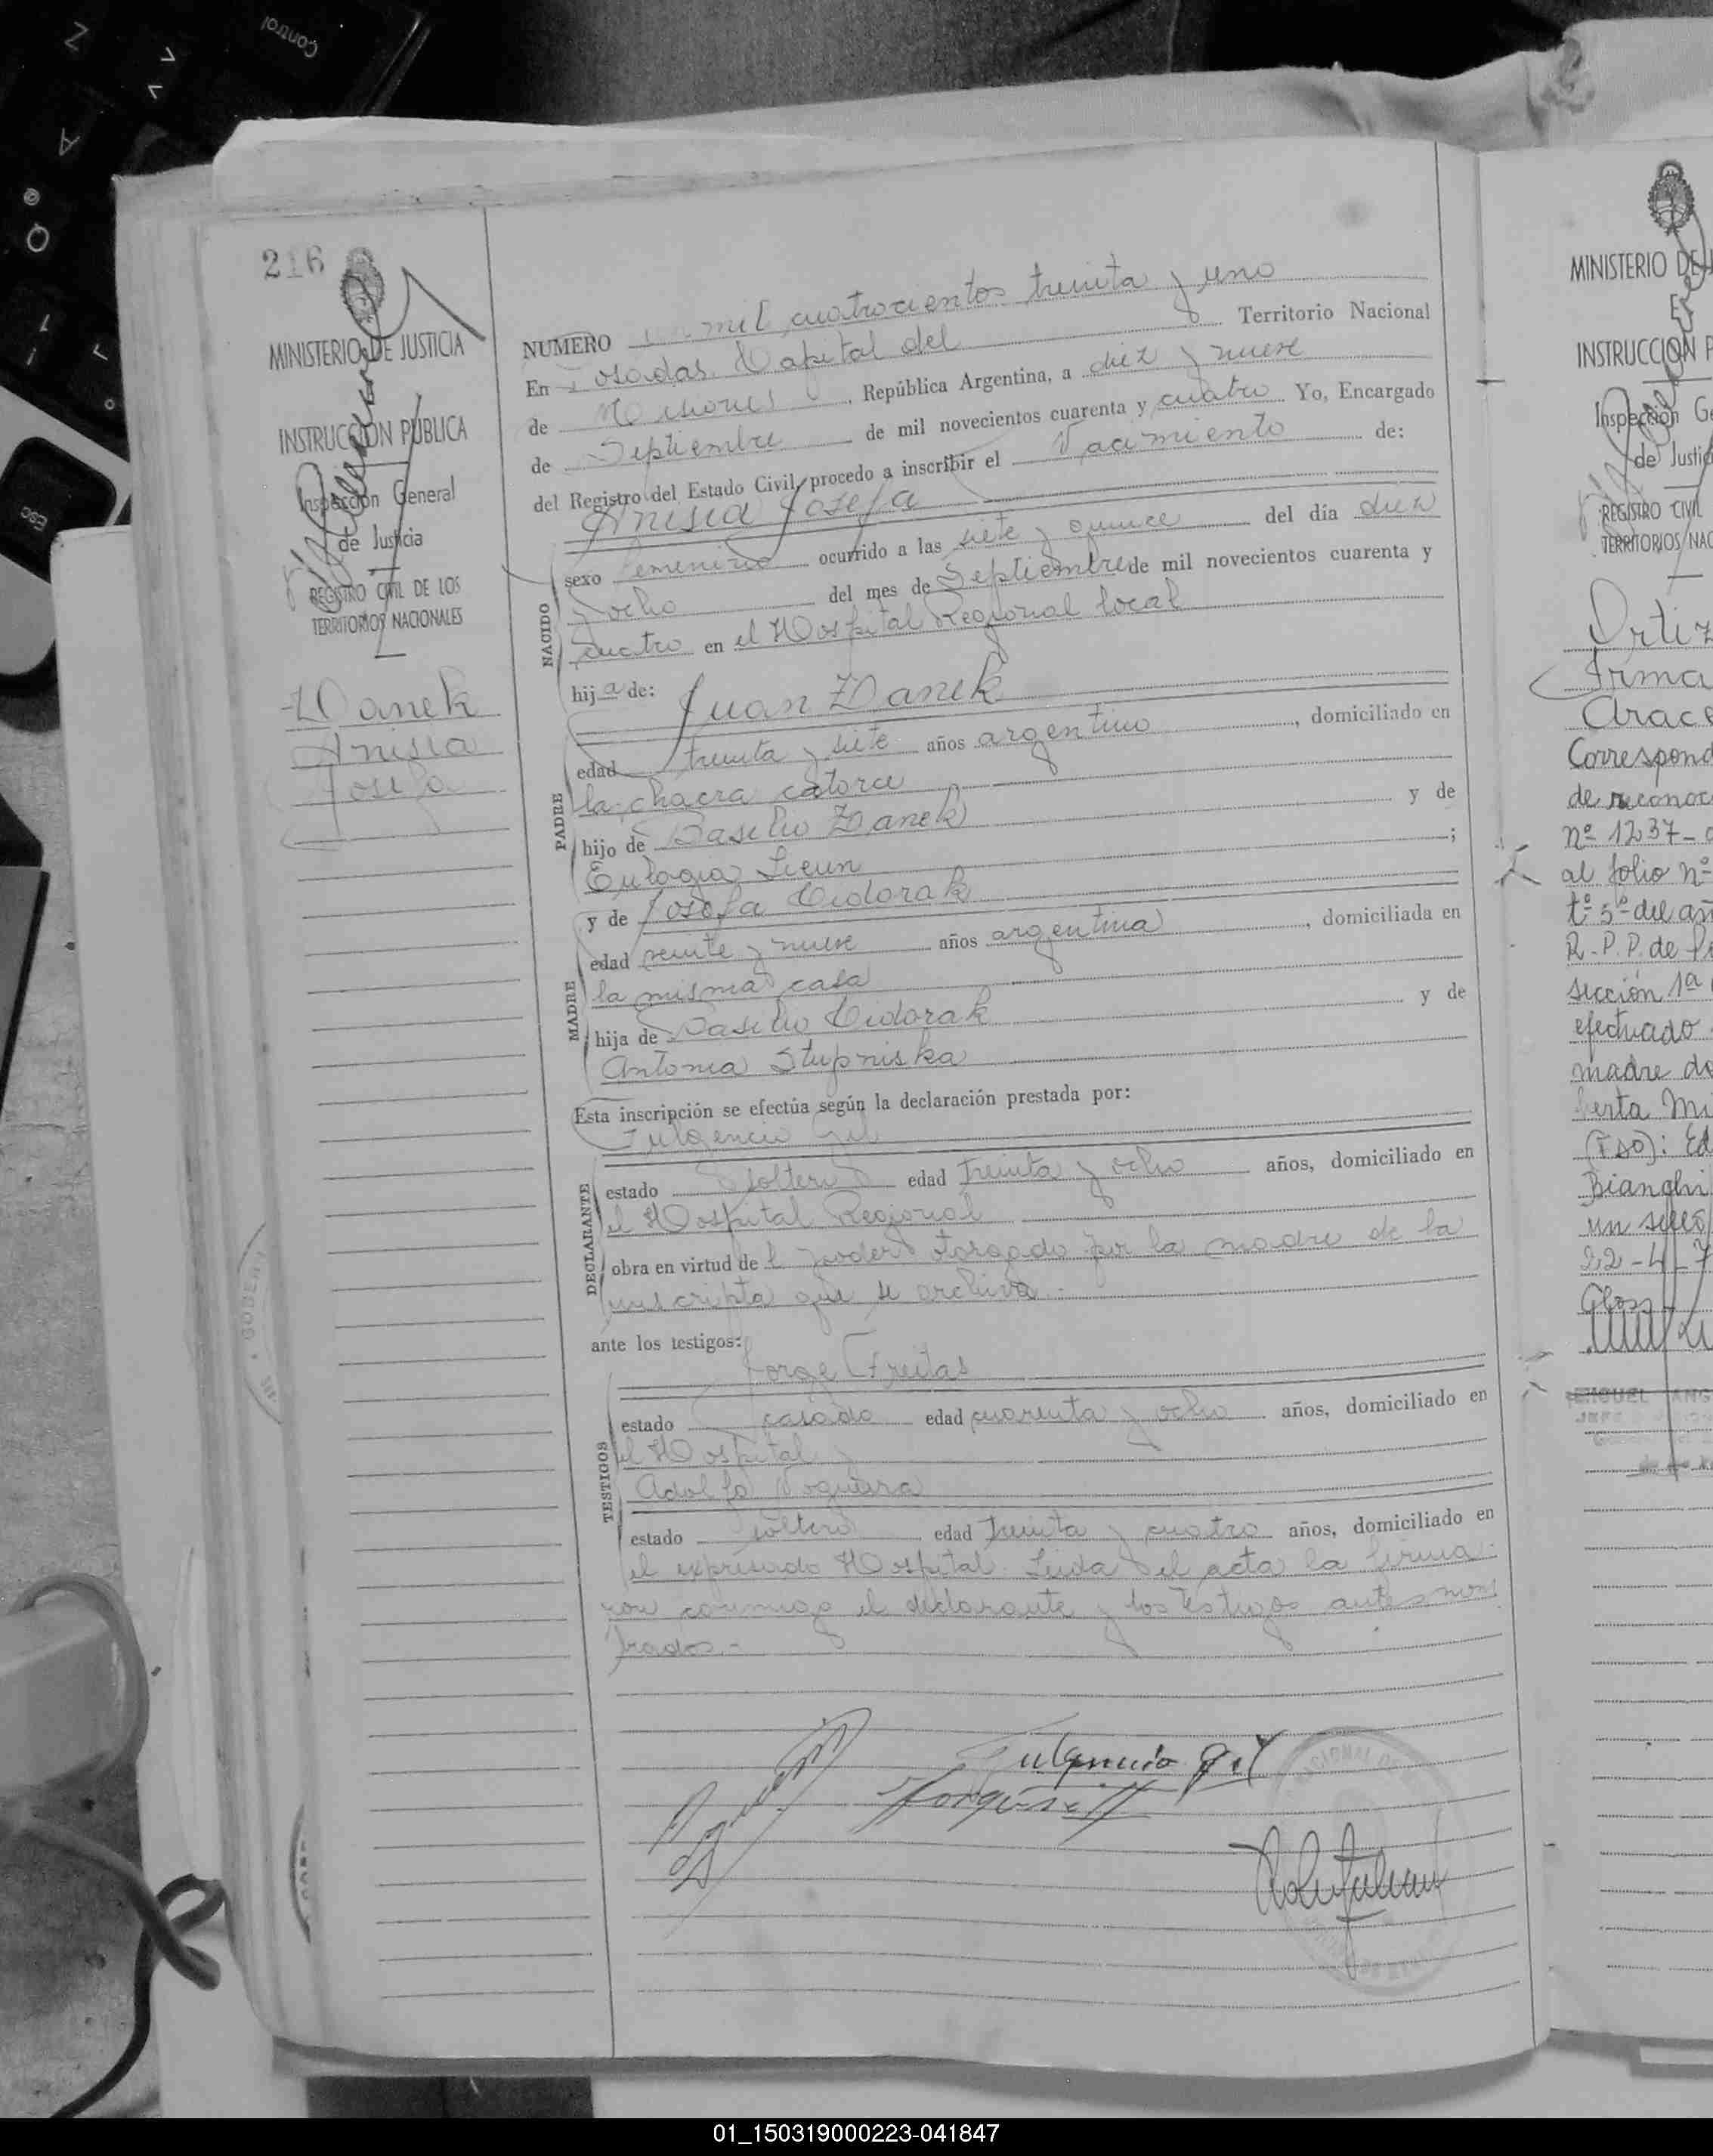 Control
Z
A
Q
Esc
216
MINISTERIO DE JUSTICIA
INSTRUCCION PUBLICA
Inspección General
de Justicia
REGISTRO CIVIL DE LOS
TERRITORIOS NACIONALES
Zanek
Anisia
Josefa
NUMERO mil cuatrocientos treinta y uno
En Posadas Capital del Territorio Nacional
de Misiones, República Argentina, a diez y nueve
de Septiembre de mil novecientos cuarenta y cuatro Yo, Encargado
del Registro del Estado Civil, procedo a inscribir el Nacimiento de:
Anisia Josefa
NACIDO
sexo femenino ocurrido a las siete y quince del día diez
y ocho del mes de Septiembre de mil novecientos cuarenta y
cuatro en el Hospital Regional local
hija de: Juan Zanek
PADRE
edad treinta y siete años argentino, domiciliado en
la chacra catorce
hijo de Basilio Zanek y de
Eulogia ;
y de Josefa
MADRE
edad veinte y nueve años argentina, domiciliada en
la misma casa
hija de Basilio y de
Antonia Stupniska
Esta inscripción se efectúa según la declaración prestada por:
Fulgencio Gil
DECLARANTE
estado soltero edad treinta y ocho años, domiciliado en
el Hospital Regional
obra en virtud del poder otorgado por la madre de la
inscripta que se archiva.
ante los testigos:
Jorge Freitas
TESTIGOS
estado casado edad cuarenta y ocho años, domiciliado en
el Hospital y
Adolfo Noguera
estado soltero edad treinta y cuatro años, domiciliado en
el expresado Hospital. Leida el acta la firma-
ron conmigo el declarante y los testigos antes nom
brados.-
Fulgencio Gil
MINISTERIO DE J
INSTRUCCION P
Inspección Ge
de Justic
REGISTRO CIVIL
TERRITORIOS NAC
Ortiz
Irma
Arace
Correspond
de reconoc
nº 1237-
al folio nº
tº 5º del añ
R.P.P. de
sección 1ª
efectuado
madre do
berta Mi
(FSO): Ed
Bianchi
un sello
22-4-7
MIGUEL ANG
01_150319000223-041847